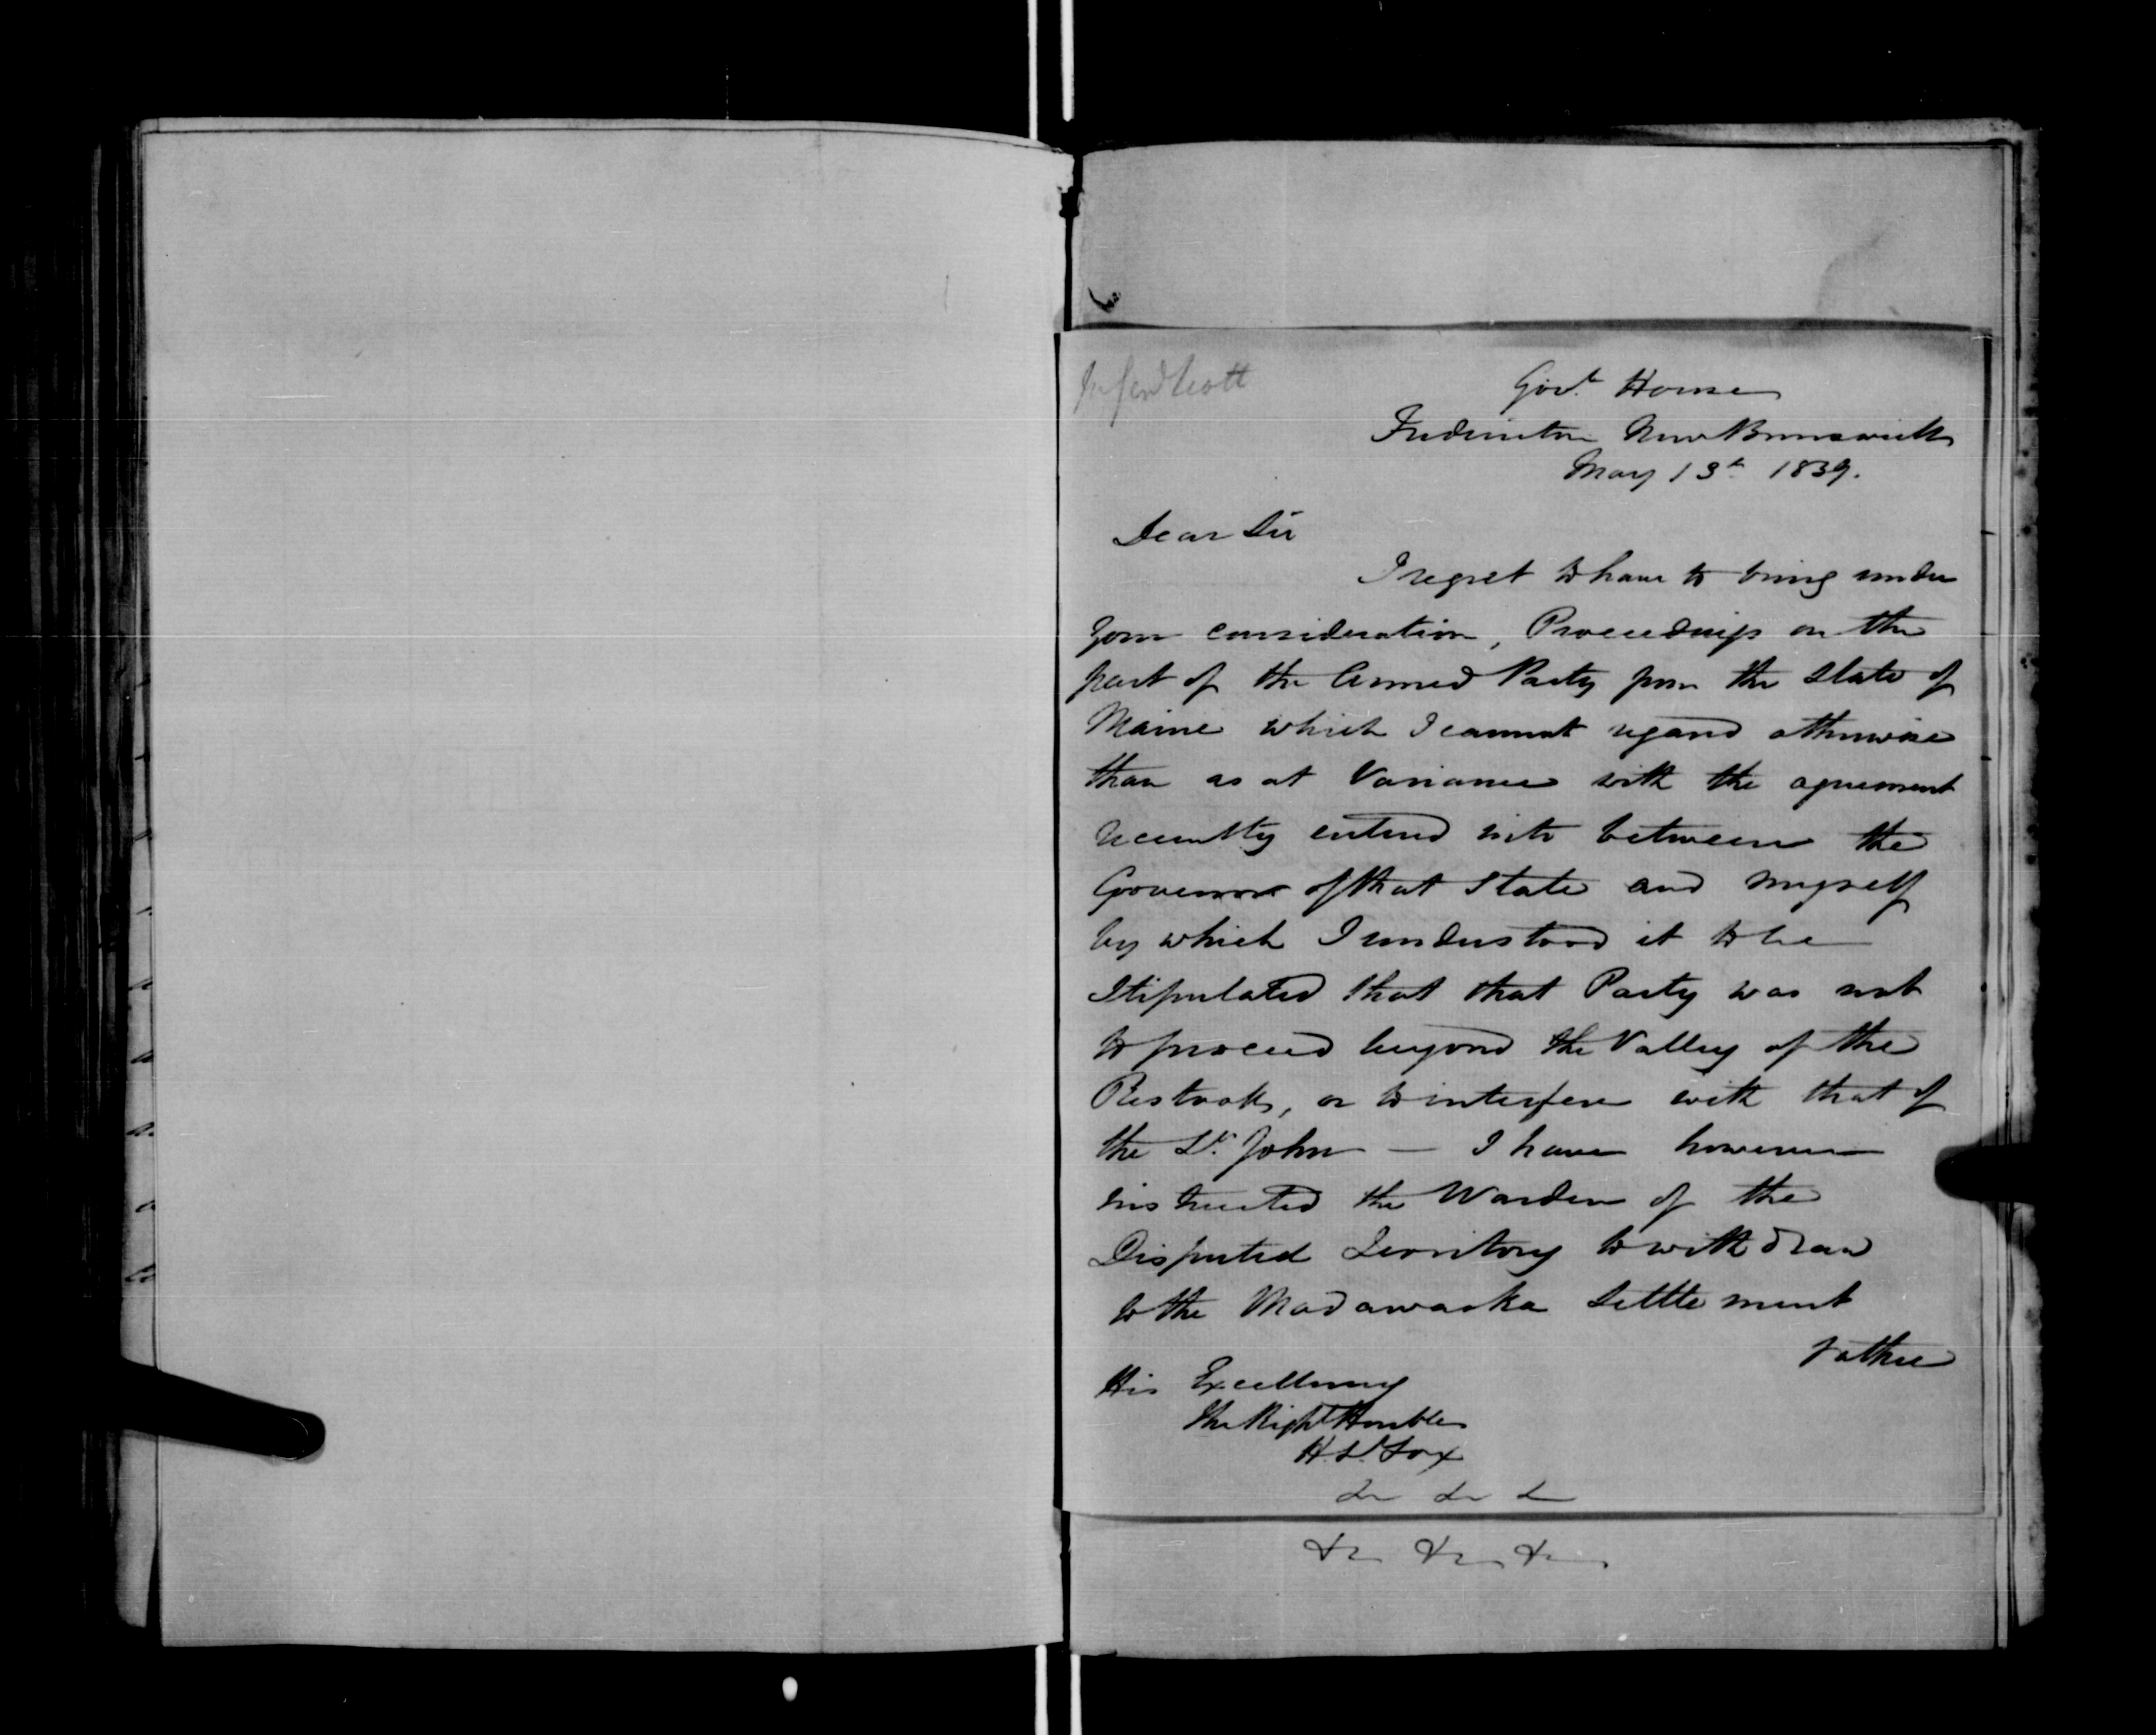 Govt. House
Fredericton New Brunswick
May 13th 1839.
Dear Sir
I regret to have to bring under
your consideration, Proceedings on the
part of the Armed Party from the State of
Maine which I cannot regard otherwise
than as at Variance with the agreement
recently entered into between the
Governor of that State and myself
by which I understood it to be
Stipulated that that Party was not
to proceed beyond the Valley of the
Restook, or to interfere with that of
the St. John — I have however
instructed the Warden of the
Disputed Territory to withdraw
to the Madawaska Settlement
rather
His Excellency
The Right Honble
H. S. Fox
&c &c &c
&c &c &c